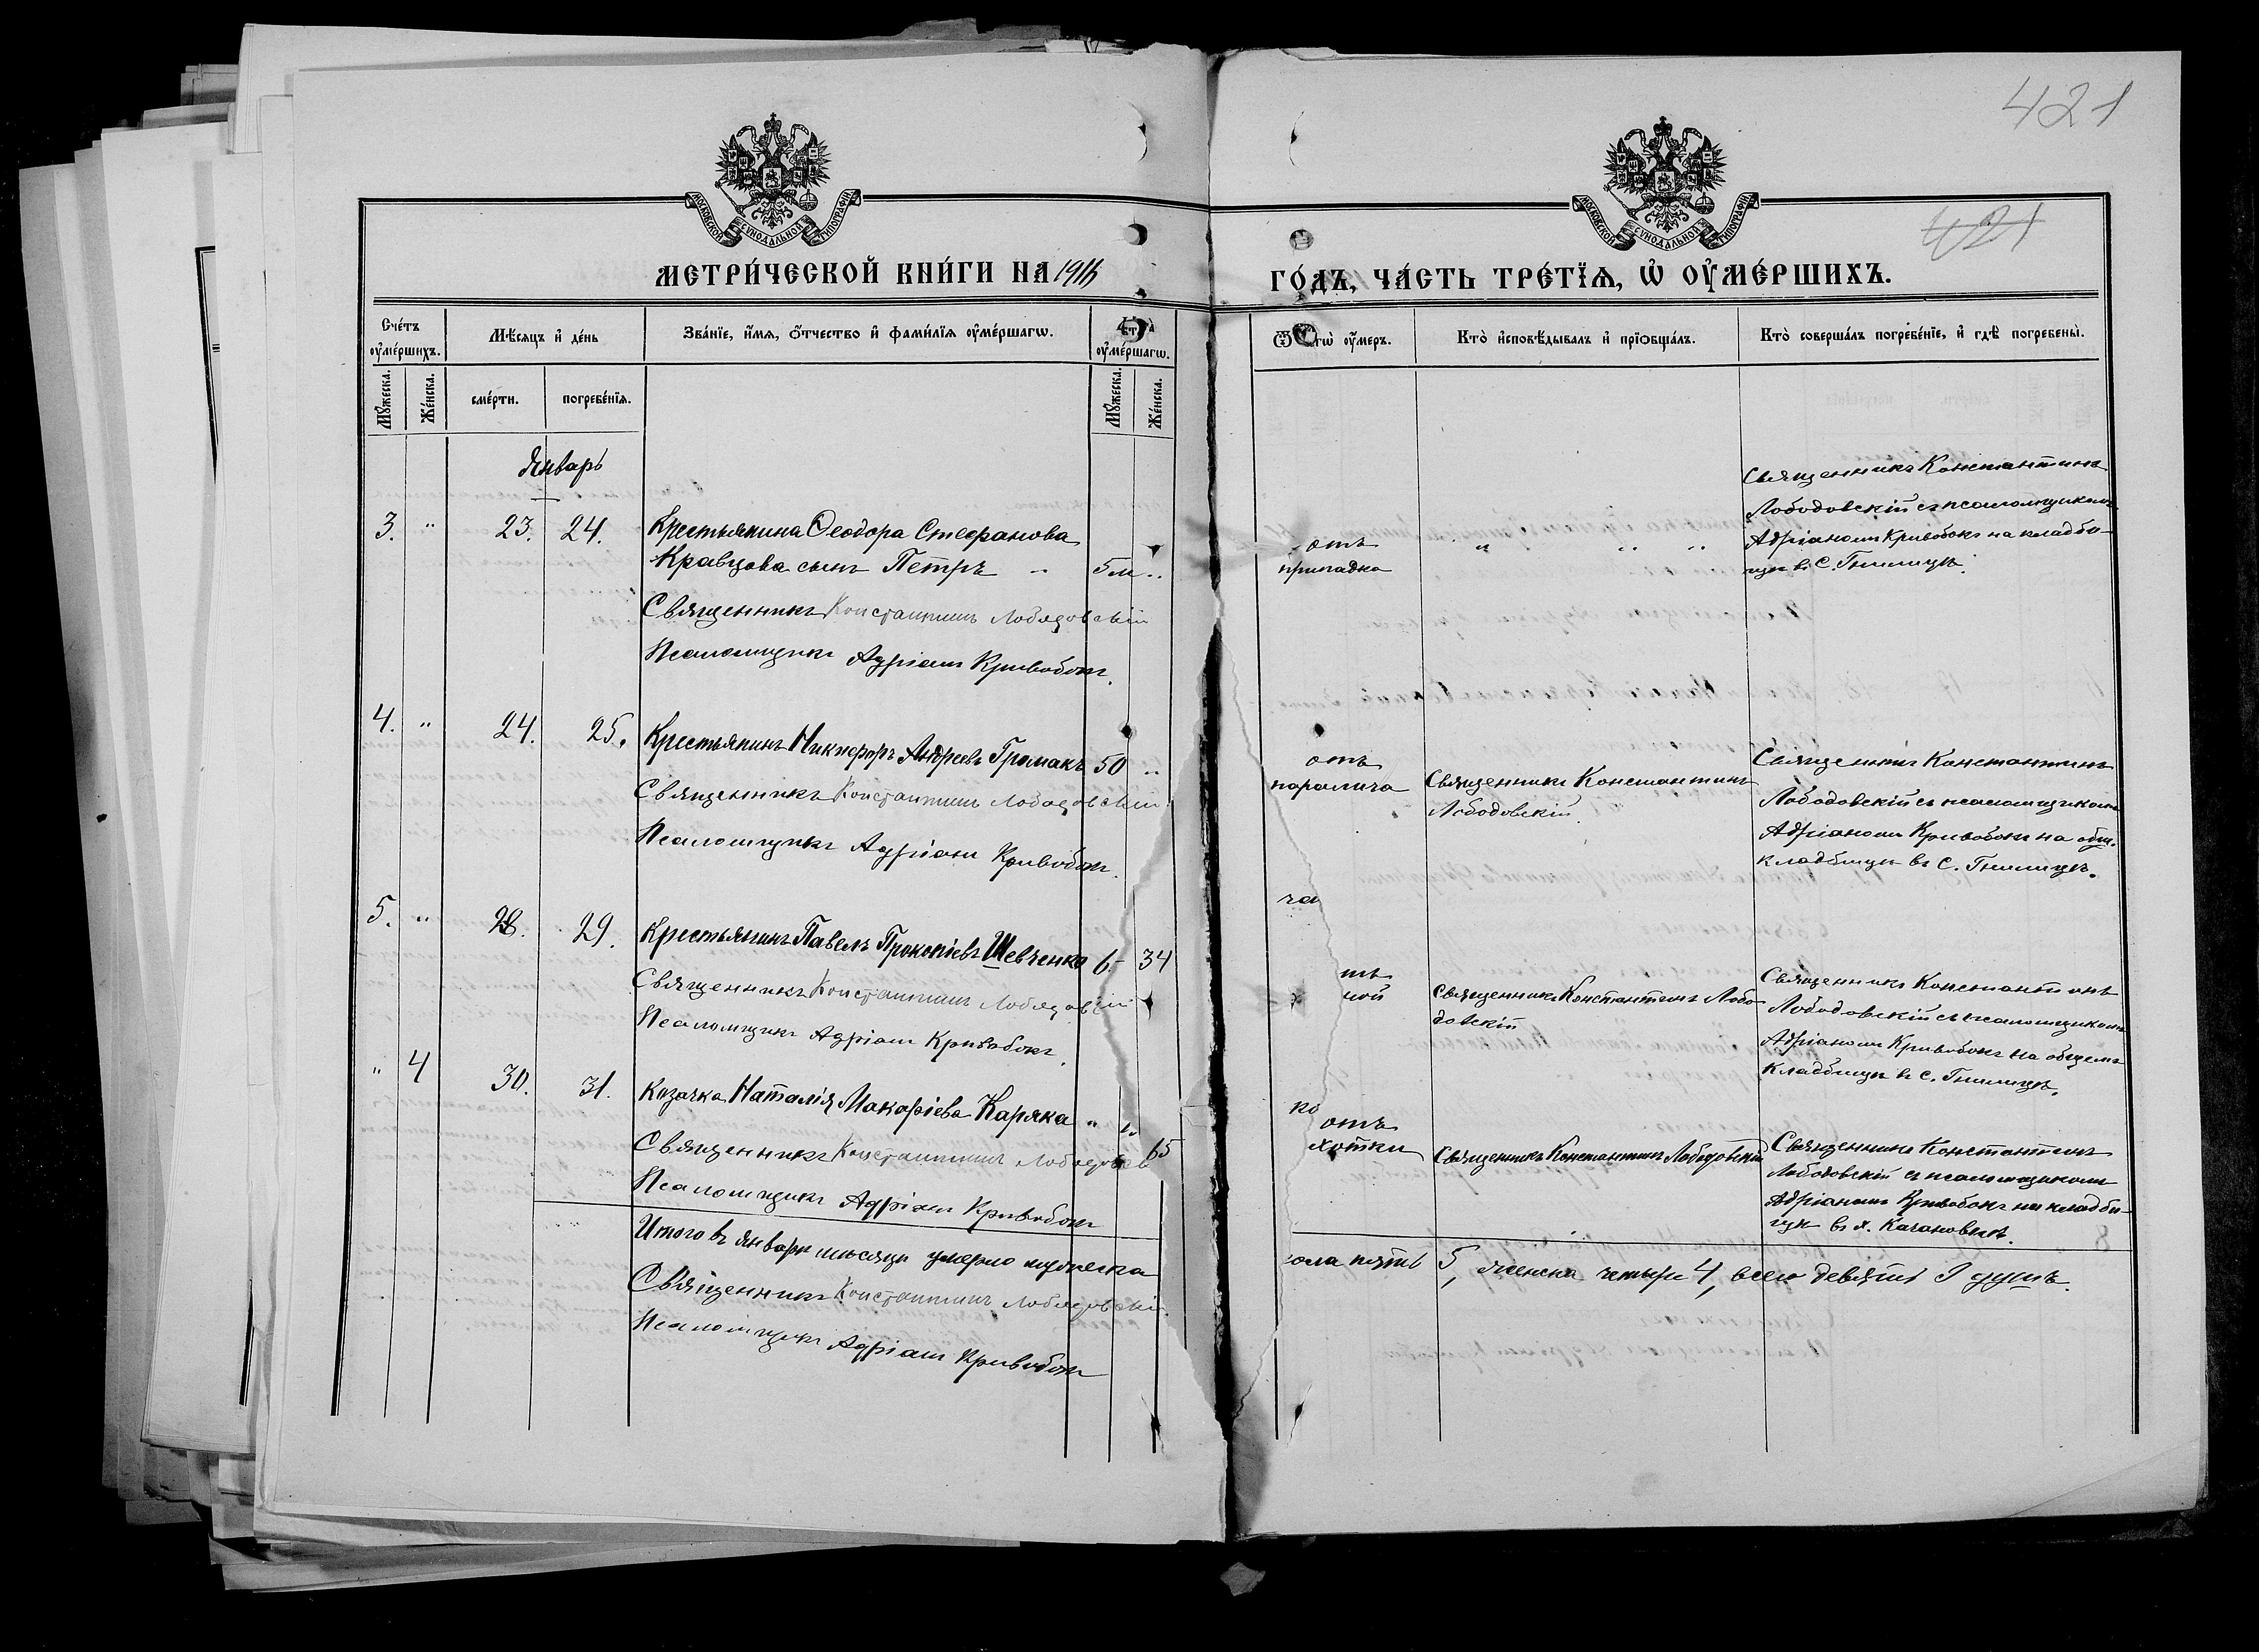 421
421
МОСКОВСКОЙ СѴНОДАЛЬНОЙ ТИПОГРАФІИ
МОСКОВСКОЙ СѴНОДАЛЬНОЙ ТИПОГРАФІИ
МЕТРИ́ЧЕСКОЙ КНИ́ГИ НА
ГО́ДЪ, ЧА́СТЬ ТРЕ́ТЇѦ, Ѡ҆ ОУ҆МЕ́РШИХЪ.
Сче́тъ оу҆ме́ршихъ.
Мѣ́сяцъ и҆ де́нь
Зва́нїе, и҆́мя, ѻ҆́тчество и҆ фами́лїя оу҆ме́ршагѡ.
оу҆ме́ршагѡ.
оу҆́меръ.
Кто̀ и҆сповѣ́дывалъ и҆ прїѡбща́лъ.
Кто̀ соверша́лъ погребе́нїе, и҆ гдѣ̀ погребены̀.
Мꙋ́жеска.
Же́нска.
сме́рти.
погребе́нїя.
Мꙋ́жеска.
Же́нска.
Январь
3. " 23. 24. Крестьянина Ѳеодора Стефанова
Кравцова сынъ Петръ 5 м "
Священникъ Константинъ Лободовскій
Псаломщикъ Адріанъ Кривобокъ.
отъ
припадка
" " "
Священникъ Константинъ
Лободовскій съ псаломщикомъ
Адріаномъ Кривобокъ на кладби-
щѣ въ с. Гнилицѣ.
4. " 24. 25. Крестьянинъ Никифоръ Андреевъ Громакъ 50 "
Священникъ Константинъ Лободовскій
Псаломщикъ Адріанъ Кривобокъ.
отъ
паралича
Священникъ Константинъ
Лободовскій.
Священникъ Константинъ
Лободовскій съ псаломщикомъ
Адріаномъ Кривобокъ на общ.
кладбищѣ въ с. Гнилицѣ.
ча
5. " 28. 29. Крестьянинъ Павелъ Прокопіевъ Шевченко 34
Священникъ Константинъ Лободовскій
Псаломщикъ Адріанъ Кривобокъ.
тъ
ной
Священникъ Константинъ Лобо-
довскій
Священникъ Константинъ
Лободовскій съ псаломщикомъ
Адріаномъ Кривобокъ на общемъ
кладбищѣ въ с. Гнилицѣ.
" 4 30. 31. Козачка Наталія Макаріева Каряка " 65
Священникъ Константинъ
Псаломщикъ Адріанъ Кривобокъ
ко
отъ
хотки
Священникъ Константинъ Лободовскій
Священникъ Константинъ
Лободовскій съ псаломщикомъ
Адріаномъ Кривобокъ на кладби-
щѣ въ х. Качановкѣ.
Итого въ январѣ мѣсяцѣ умерло мужеска
пола пять 5, женска четыре 4, всего девять 9 душъ.
Священникъ Константинъ Лободовскій
Псаломщикъ Адріанъ Кривобокъ